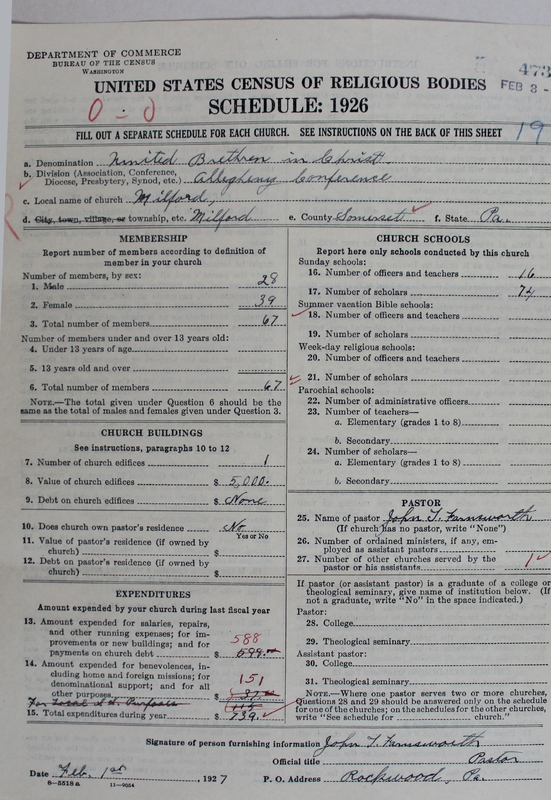 DEPARTMENT OF COMMERCE
BUREAU OF THE CENSUS
WASHINGTON
473
FEB 3 -
UNITED STATES CENSUS OF RELIGIOUS BODIES
SCHEDULE: 1926
0 - 0
FILL OUT A SEPARATE SCHEDULE FOR EACH CHURCH. SEE INSTRUCTIONS ON THE BACK OF THIS SHEET
19
a. Denomination United Brethren in Christ
b. Division (Association, Conference, Diocese, Presbytery, Synod, etc.) Allegheny Conference
c. Local name of church Milford,
d. City, town, village, or township, etc. Milford e. County Somerset f. State Pa.
MEMBERSHIP
Report number of members according to definition of
member in your church
Number of members, by sex:
1. Male 28
2. Female 39
3. Total number of members 67
Number of members under and over 13 years old:
4. Under 13 years of age
5. 13 years old and over
6. Total number of members 67
NOTE.—The total given under Question 6 should be the
same as the total of males and females given under Question 3.
CHURCH BUILDINGS
See instructions, paragraphs 10 to 12
7. Number of church edifices 1
8. Value of church edifices $ 5,000.
9. Debt on church edifices $ None
10. Does church own pastor's residence No
Yes or No
11. Value of pastor's residence (if owned by
church) $
12. Debt on pastor's residence (if owned by
church) $
EXPENDITURES
Amount expended by your church during last fiscal year
13. Amount expended for salaries, repairs,
and other running expenses; for im-
provements or new buildings; and for 588
payments on church debt $
14. Amount expended for benevolences, in-
cluding home and foreign missions; for
denominational support; and for all 151
other purposes $
For Local S.S. Purposes
15. Total expenditures during year $ 739.
CHURCH SCHOOLS
Report here only schools conducted by this church
Sunday schools:
16. Number of officers and teachers 16
17. Number of scholars 74
Summer vacation Bible schools:
18. Number of officers and teachers
19. Number of scholars
Week-day religious schools:
20. Number of officers and teachers
21. Number of scholars
Parochial schools:
22. Number of administrative officers
23. Number of teachers—
a. Elementary (grades 1 to 8)
b. Secondary
24. Number of scholars—
a. Elementary (grades 1 to 8)
b. Secondary
PASTOR
25. Name of pastor John T. Farnsworth
(If church has no pastor, write "None")
26. Number of ordained ministers, if any, em-
ployed as assistant pastors
27. Number of other churches served by the
pastor or his assistants 1
If pastor (or assistant pastor) is a graduate of a college or
theological seminary, give name of institution below. (If
not a graduate, write "No" in the space indicated.)
Pastor:
28. College
29. Theological seminary
Assistant pastor:
30. College
31. Theological seminary
NOTE.—Where one pastor serves two or more churches,
Questions 28 and 29 should be answered only on the schedule
for one of the churches; on the schedules for the other churches,
write "See schedule for church."
Signature of person furnishing information John T. Farnsworth
Official title Pastor
Date Feb. 1st, 1927 P. O. Address Rockwood, Pa.
8-5518a 11-9054